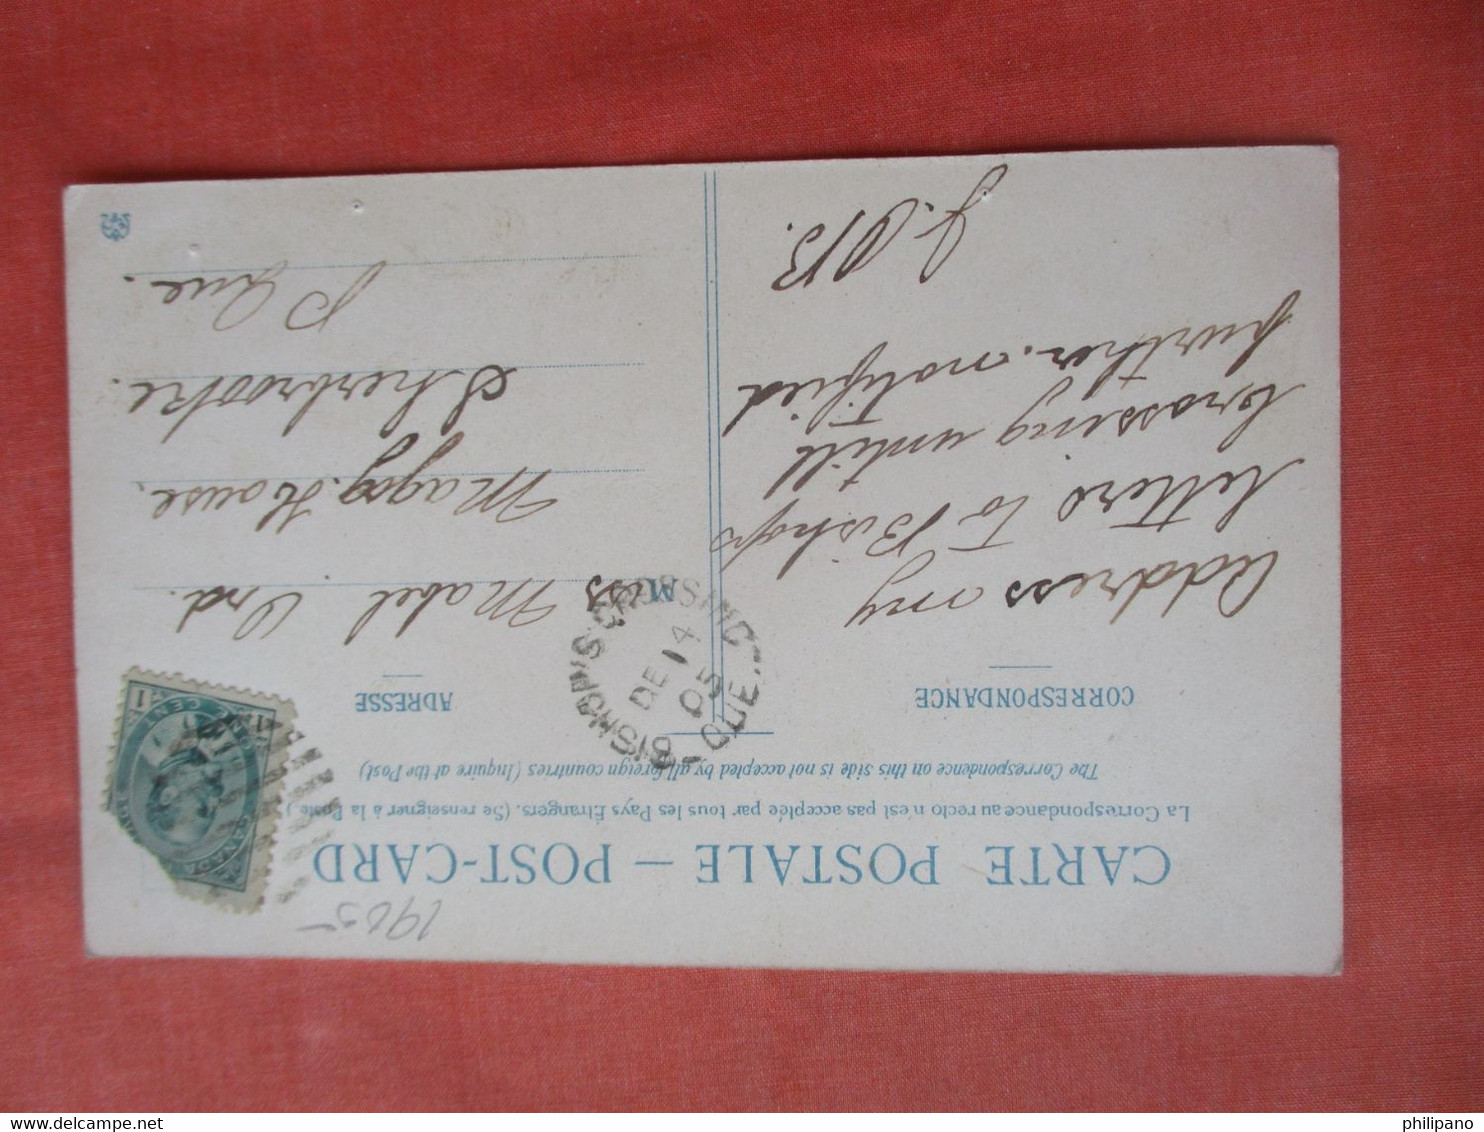 1905
CARTE POSTALE — POST-CARD
La Correspondance au recto n'est pas acceptée par tous les Pays Étrangers. (Se renseigner à la Poste)
The Correspondence on this side is not accepted by all foreign countries (Inquire at the Post)
CORRESPONDANCE
Address my
letters to Bishops
Crossing untill
further notified
ADRESSE
BISHOP'S CROSSING
DE 14
05
QUE.
Miss Mabel Ord.
Magog House.
Sherbrooke.
P Que.
1
CENT
1
philipano